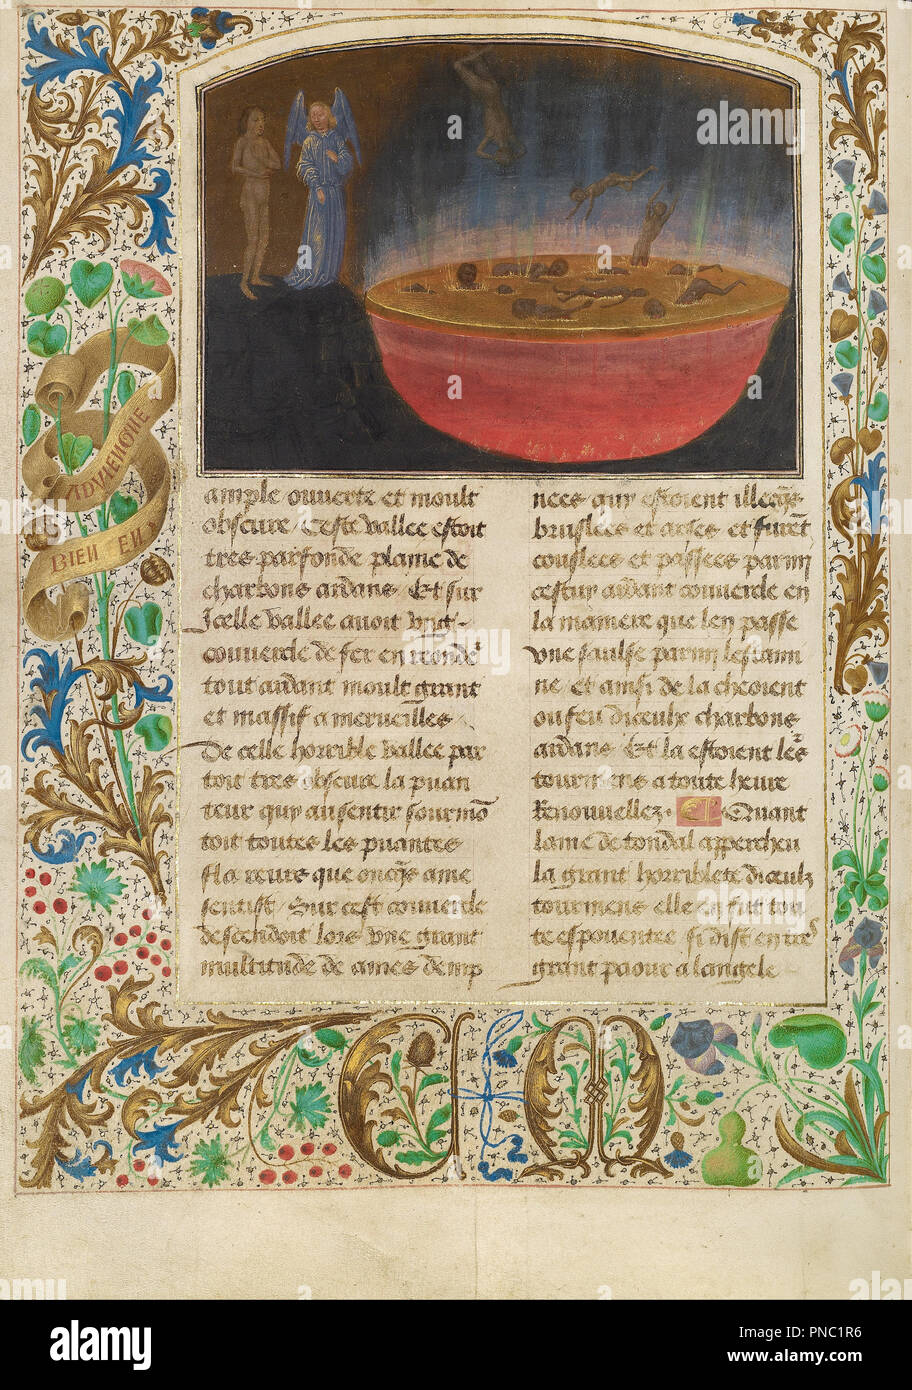 ADVIENGNE
BIEN EN
ample ouverte et moult
obscure / Ceste vallee estoit
tres parfonde plaine de
charbons ardans / Et sur
Jcelle vallee avoit vng
couvercle de fer en
tout ardant moult grant
et massif a merveilles
De celle horrible vallee par
toit tres obscure la puan
teur quy au sentir
toit toutes les puantes
que ame
sentist / Sur cest couvercle
descendoit lors vne grant
multitude de ames demp
nees quy estoient
bruslees et arses et furent
coulees et passees parmy
cestuy ardant couvercle en
la maniere que len passe
vne saulse parmy lestami
ne / et ainsi de la cheoient
ou feu diceulx charbons
ardans Et la estoient les
tourmens a toute heure
Renouvellez · Quant
lame de tondal appercheu
la grant horriblete diceulx
tourmens elle en fut tou
te espouentee si dist en tres
grant paour a langele
C M
alamy stock photo
Image ID: PNC1R6
www.alamy.com